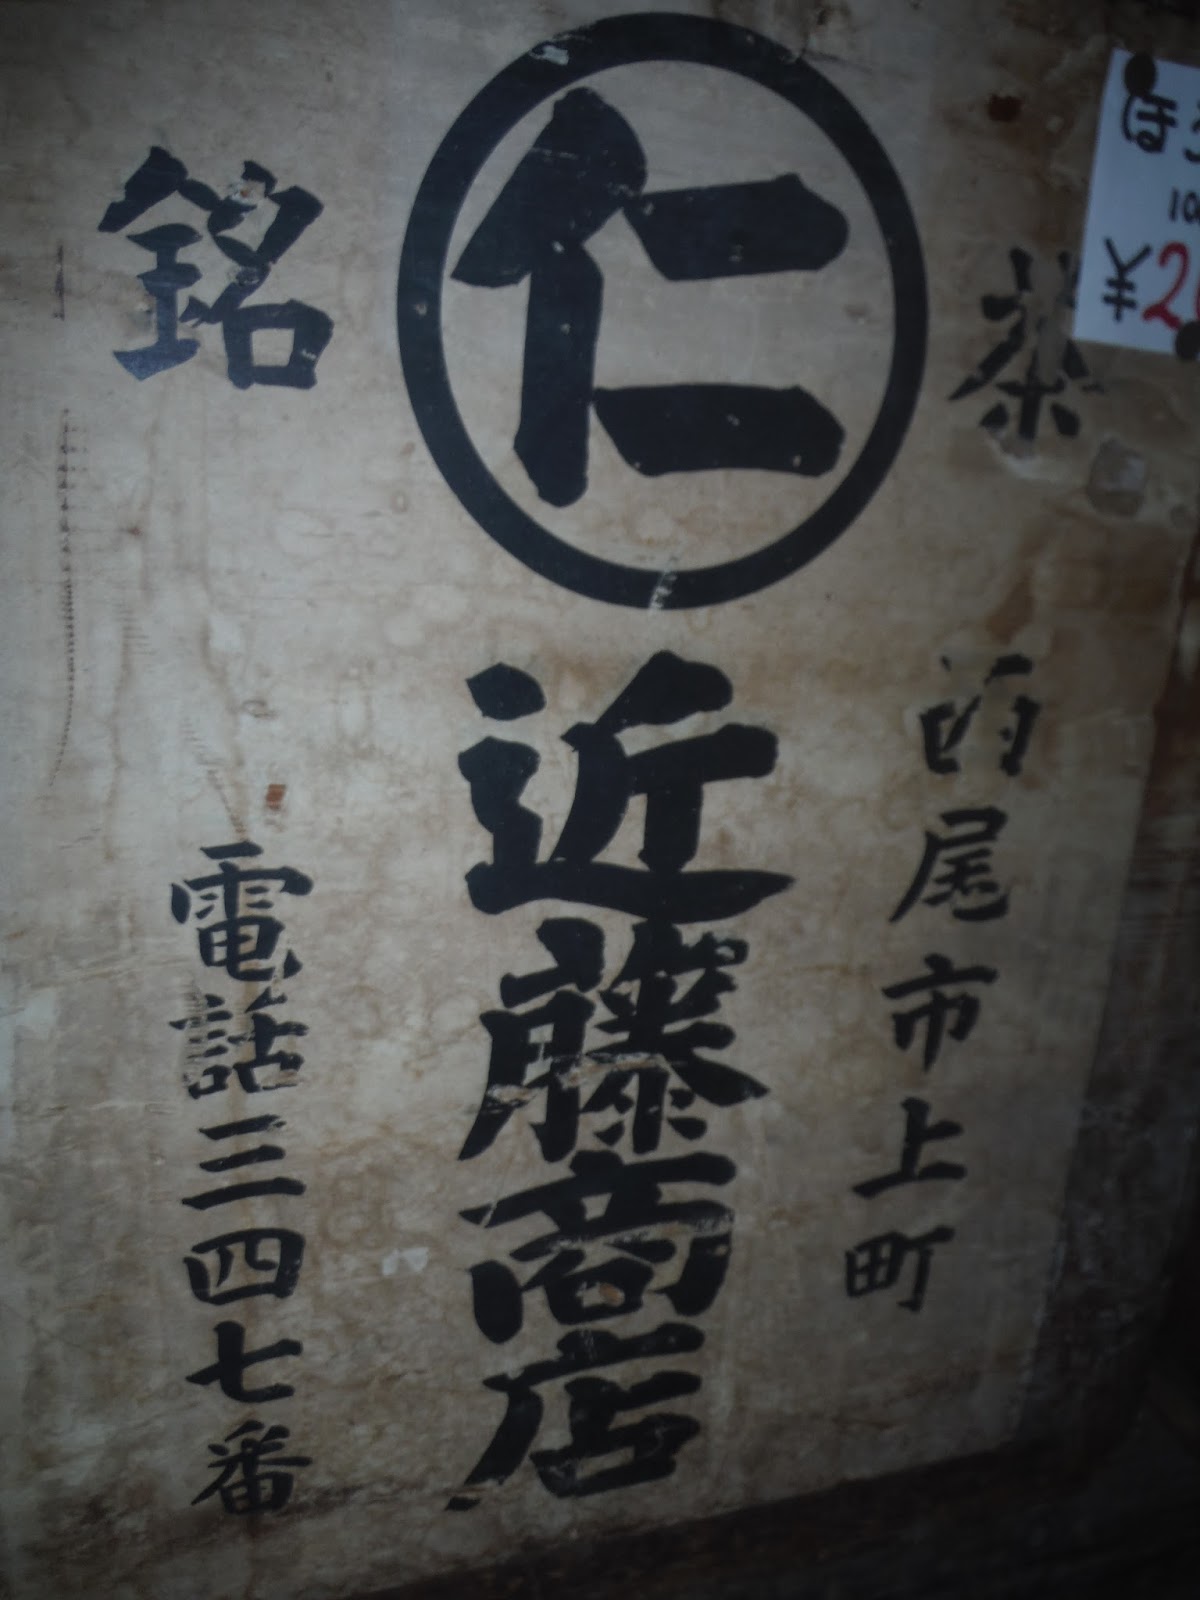 銘
仁
茶
西尾市上町
近藤商店
電話三四七番
ほう
10
¥2